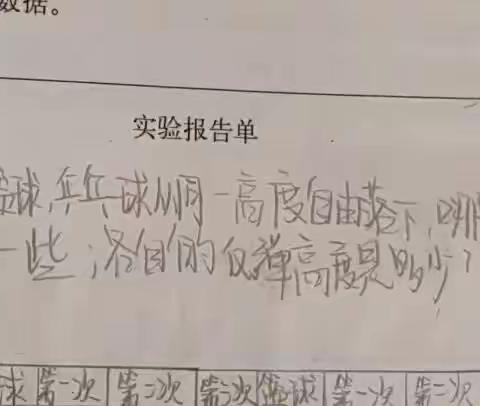 数据。
实验报告单
篮球,乒乓球从同一高度自由落下,哪
一些;各自的反弹高度是多少?
球 第一次 第二次 第三次 篮球 第一次 第二次